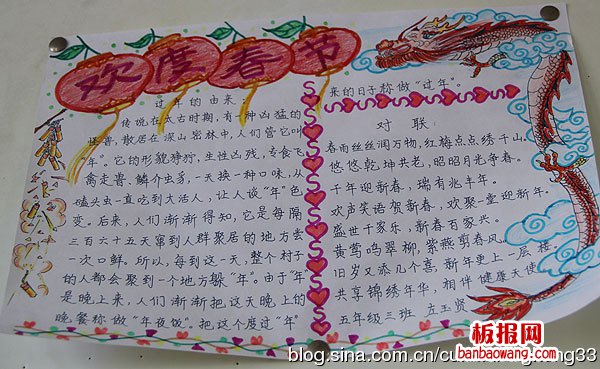 欢度春节
过年的由来:
传说在太古时期,有一种凶猛的
怪兽,散居在深山密林中,人们管它叫
“年”。它的形貌狰狞,生性凶残,专食飞
禽走兽、鳞介虫豸,一天换一种口味,从
磕头虫一直吃到大活人,让人谈“年”色
变。后来,人们渐渐得知,它是每隔
三百六十五天窜到人群聚居的地方尝
一次口鲜。所以,每到这一天,整个村子
的人都会聚到一个地方躲“年”。由于“年”
是晚上来,人们渐渐把这天晚上的
晚餐称做“年夜饭”。把这个度过“年”
来的日子称做“过年”。
对联:
春雨丝丝润万物,红梅点点绣千山。
悠悠乾坤共老,昭昭日光争春。
千年迎新春,瑞有兆丰年。
欢声笑语贺新春,欢聚一堂迎新年。
盛世千家乐,新春百家兴。
黄莺鸣翠柳,紫燕剪春风。
旧岁又添几个喜,新年更上一层楼。
共享锦绣年华,相伴健康天使。
五年级三班 左玉贤
板报网
banbaowang.com